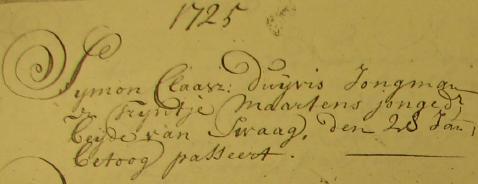 1725
Symon Claasz: Duijvis Jongman
& Trijntje Maartens jonged:
beijde van Swaag, den 28 Jan:
betoog passeert.